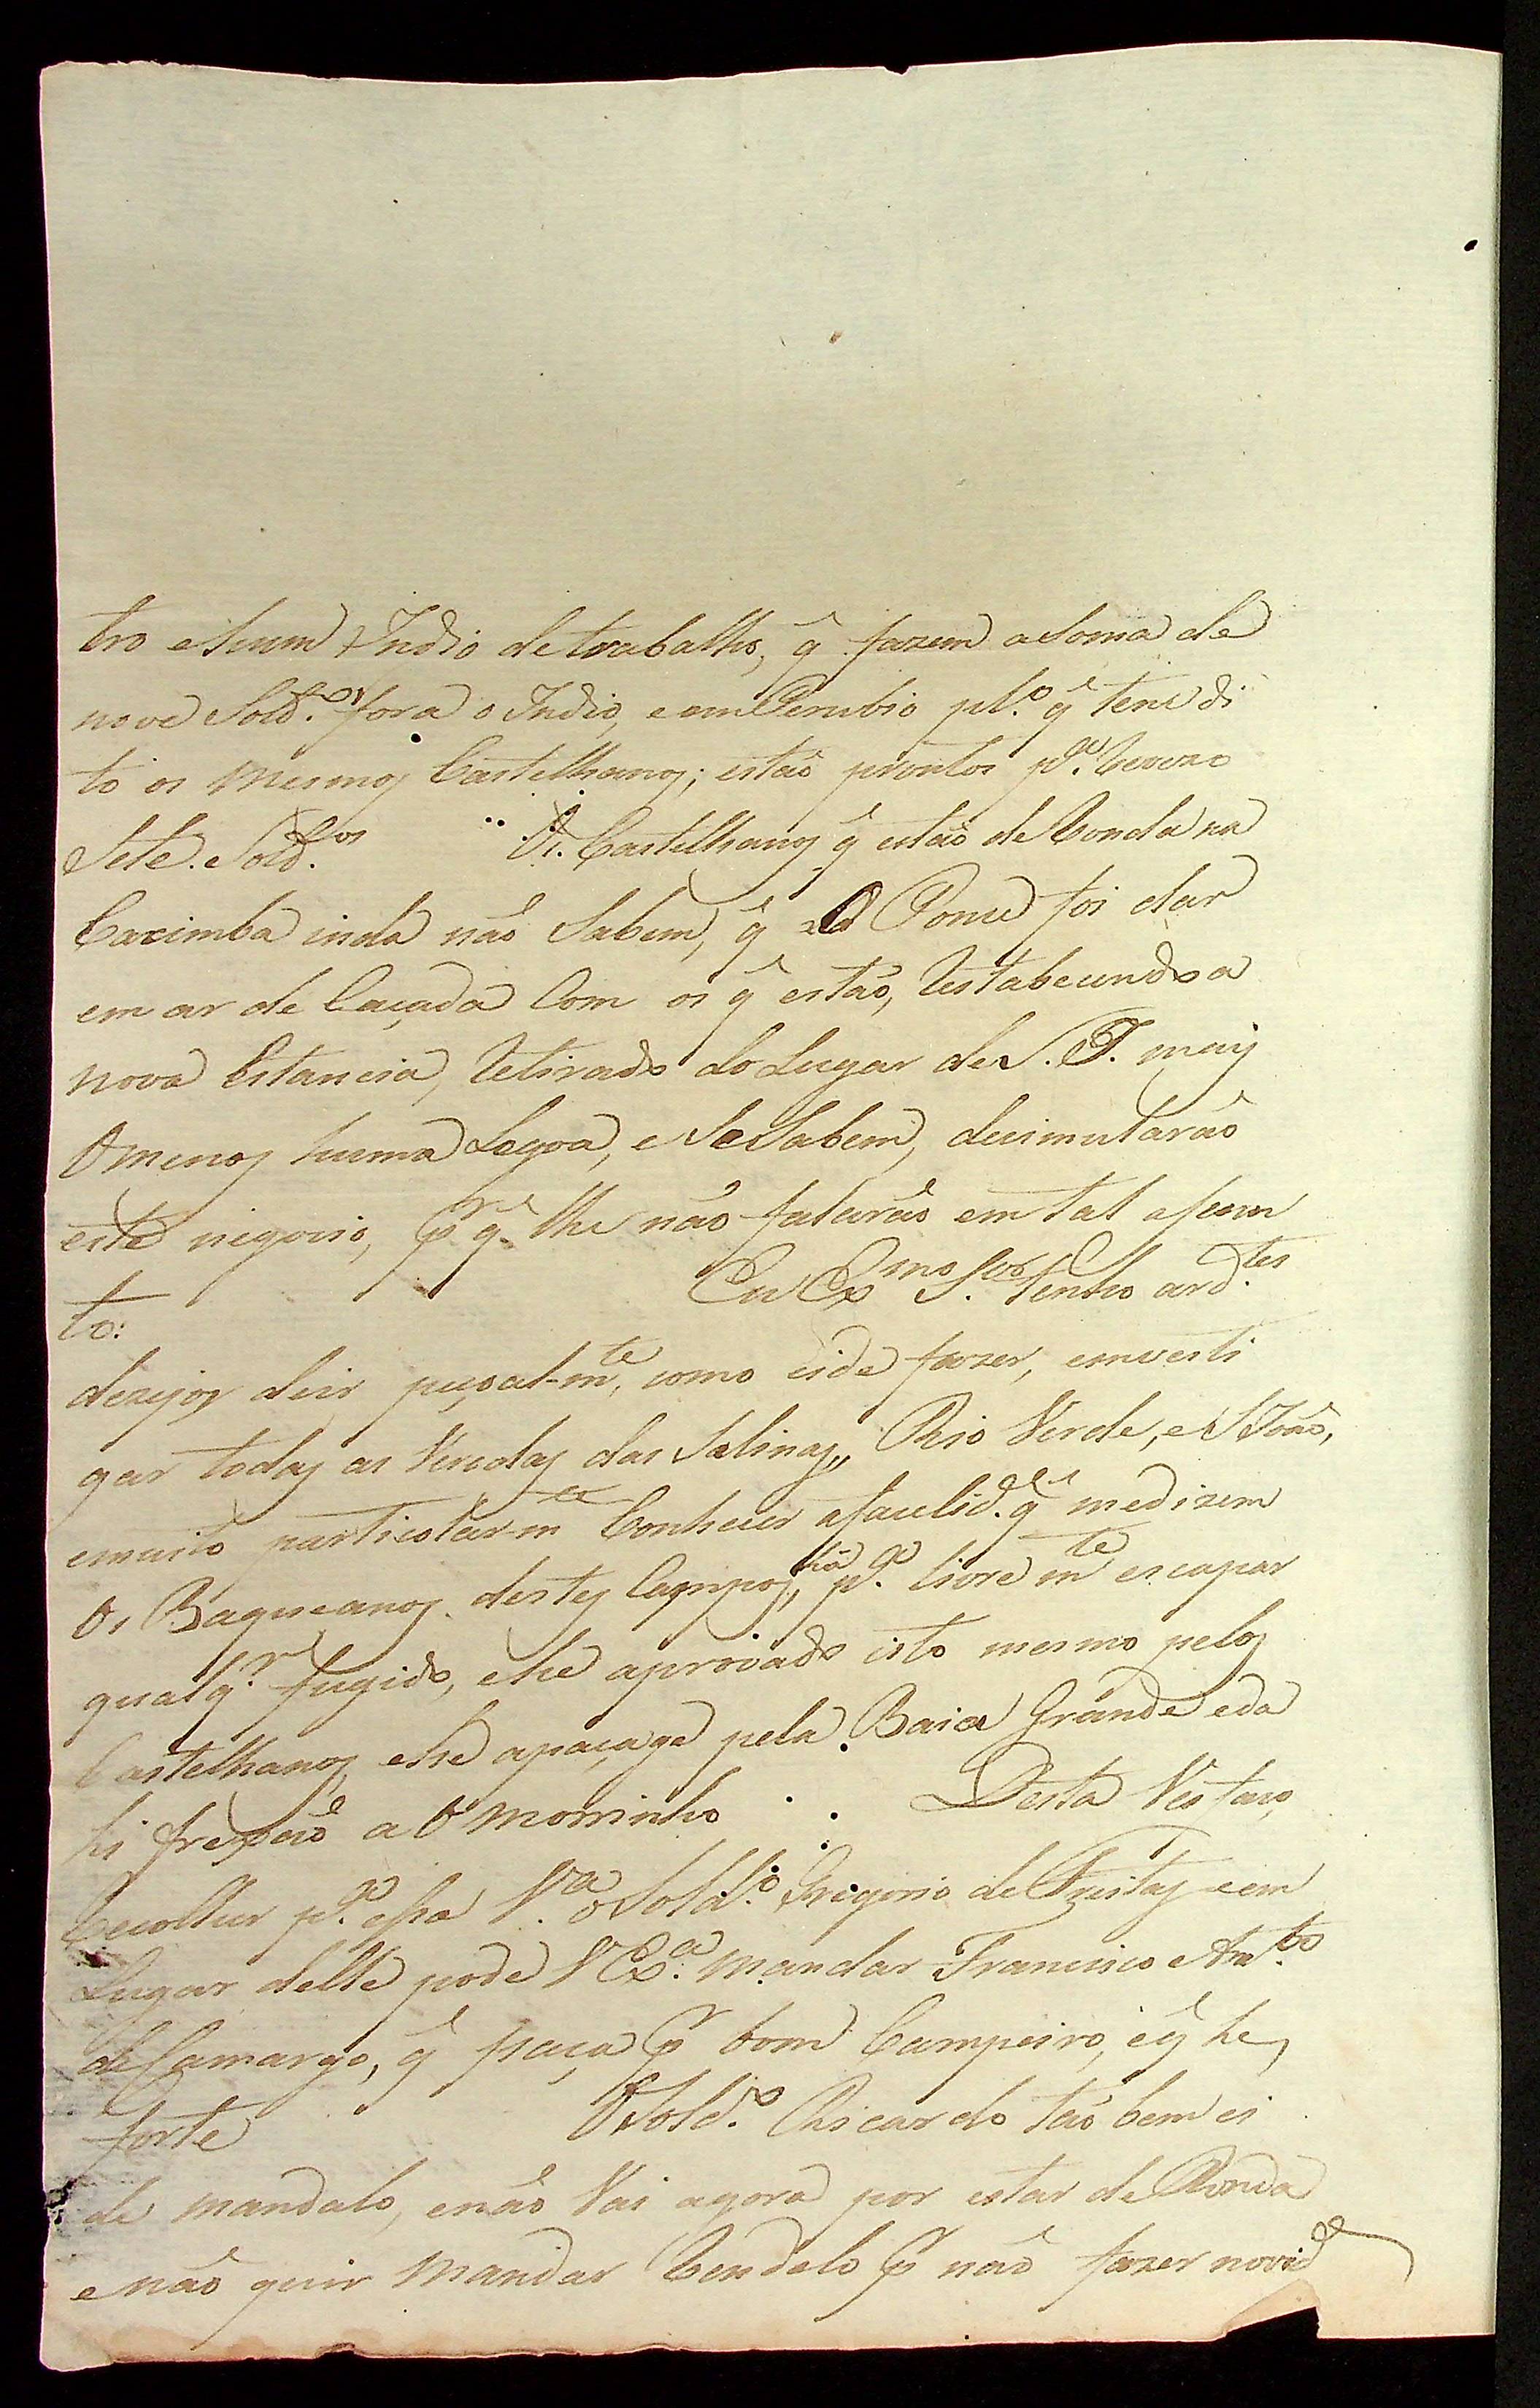 tro e hum Indio de trabalho, q̃ fazem a soma de
nove Sold.os fora o Indio, e em Perubio pl.o q̃ tem di
to os mesmos Castelhanos; estão prontos p.a
Sete Sold.os Os Castelhanos q̃ estão de Ronda na
Cacimba inda não Sabem, q̃ Ponce foi dar
em ar de Caçada Com os q̃ estão, Restabecendo a
nova Estancia, Retirado do Lugar de S. T. mais
O menos huma Legoa, e Se Sabem, decimularão
este negocio, p̃ q̃ lhe não falarão em tal asum
to: Eu Ex.mo S.or tenho ard.tes
dezejos de ir peçoal-m.te, como eide fazer, emvesti
gar todas as Veredas das Salinas, Rio Verde, e S João,
emuito particolar-m.te Conhecer afaculid.e q̃ medizem
Os Baqueanos destes Campos, há p.a livre m.te escapar
qualq.r fugido, e he aprovado isto mesmo pelos
Castelhanos, e he apaçage pela Baia Grande e da
hi a O morrinho Desta Ves faço
Recolher p.a essa V.a o Sold.o Gregorio de Freitas e em
Lugar delle pode V Ex.a mandar Francisco Ant.o
de Camargo, q̃ paça p̃ bom Campeiro, e q̃ he
forte O Sold.o Ricardo tão bem ei
de mandalo, enão Vai agora por estar de Ronda
e não quir mandar Rendelo p̃ não fazer novid.e